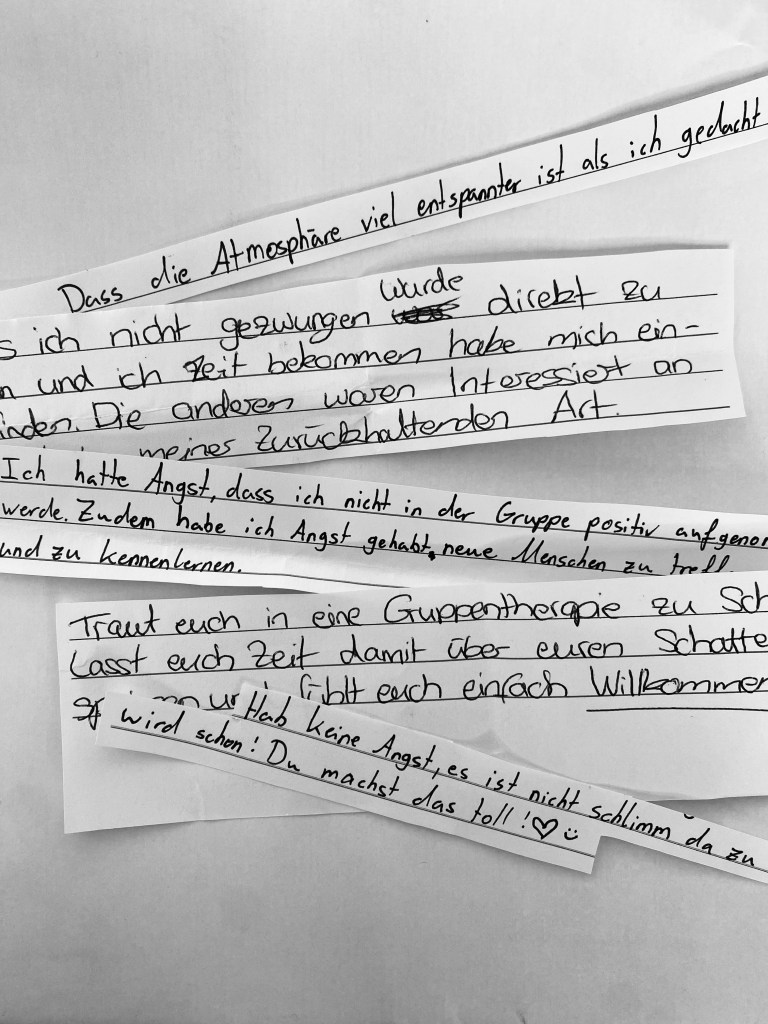 Dass die Atmosphäre viel entspannter ist als ich gedacht
ich nicht gezwungen wurde direkt zu
und ich Zeit bekommen habe mich ein-
Die anderen waren Interessiert an
meiner Zurückhaltenden Art.
Ich hatte Angst, dass ich nicht in der Gruppe positiv
werde. Zudem habe ich Angst gehabt, neue Menschen zu
und zu kennenlernen.
Traut euch in eine Guppentherapie zu
Lasst euch Zeit damit über euren
euch einfach Willkommen
Hab keine Angst, es ist nicht schlimm da zu
wird schon! Du machst das toll!♡